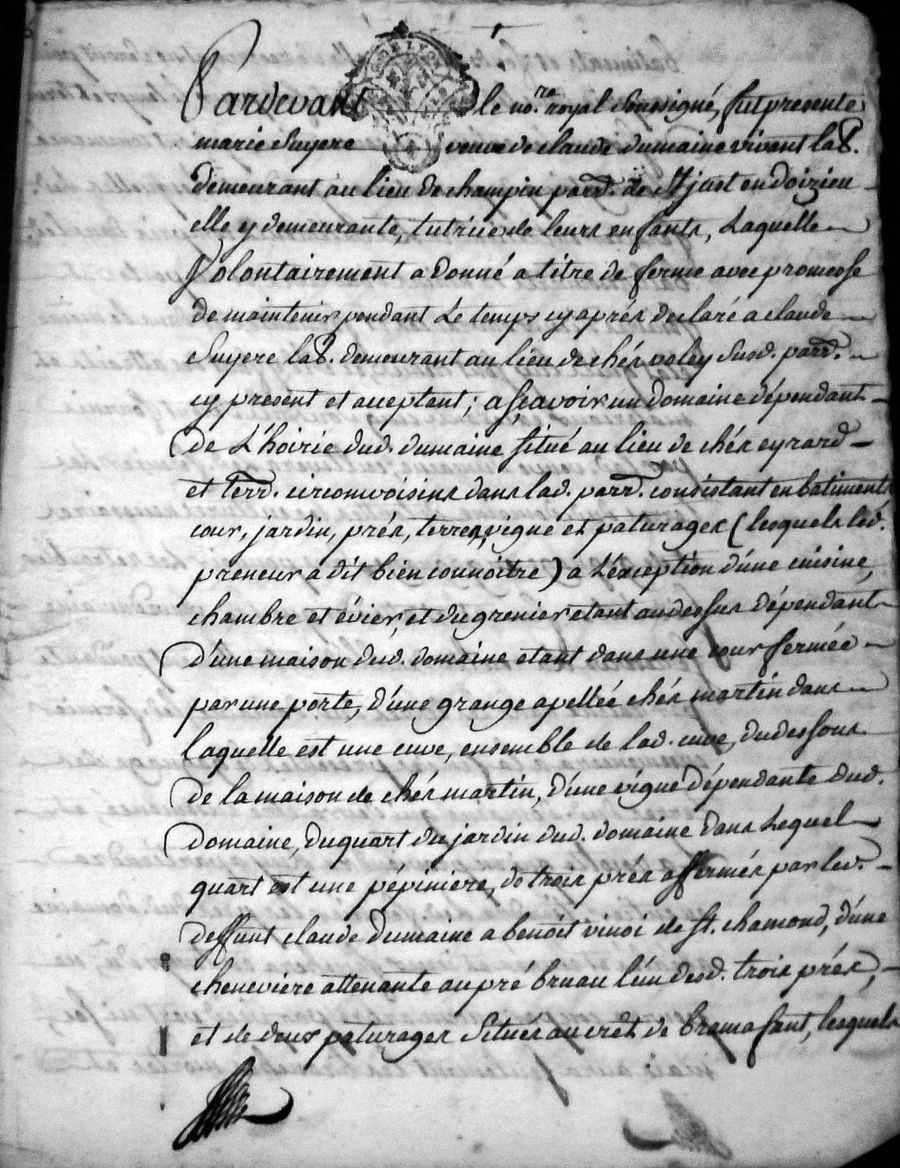 Pardevant le no.re royal soussigné, fut presente
marie Suyere veuve de claude dumaine vivant lab.
demeurant au lieu de champin parr. de St just en doizieu
elle y demeurante, tutrice de leurs enfants, Laquelle
Volontairement a donné a titre de ferme avec promesse
de maintenir pendant Le temps cy après declaré a claude
Suyere lab. demeurant au lieu de chés voley susd. parr.
cy present et acceptant; a sçavoir un domaine dépendant
de L'hoirie dud. dumaine situé au lieu de chés eyrard
et terr. circonvoisins dans lad. parr. consistant en batiments
cour, jardin, prés, terres, vigne et paturages (lesquels led.
preneur a dit bien connoitre) a L'exception d'une cuisine,
chambre et évier, et du grenier etant au dessus dépendant
d'une maison dud. domaine etant dans une cour fermée
par une porte, d'une grange apelleé chés martin dans
laquelle est une cuve, ensemble de lad. cuve, du dessous
de la maison de chés martin, d'une vigne dépendante dud.
domaine, du quart du jardin dud. domaine dans Lequel
quart est une pépiniere, de trois prés affermés par led.
deffunt claude dumaine a benoit vinoi de st. chamond, d'une
cheneviere attenante au pré bruau l'un desd. trois prés,
et de deux paturages situés au crêt de bramafant, lesquels